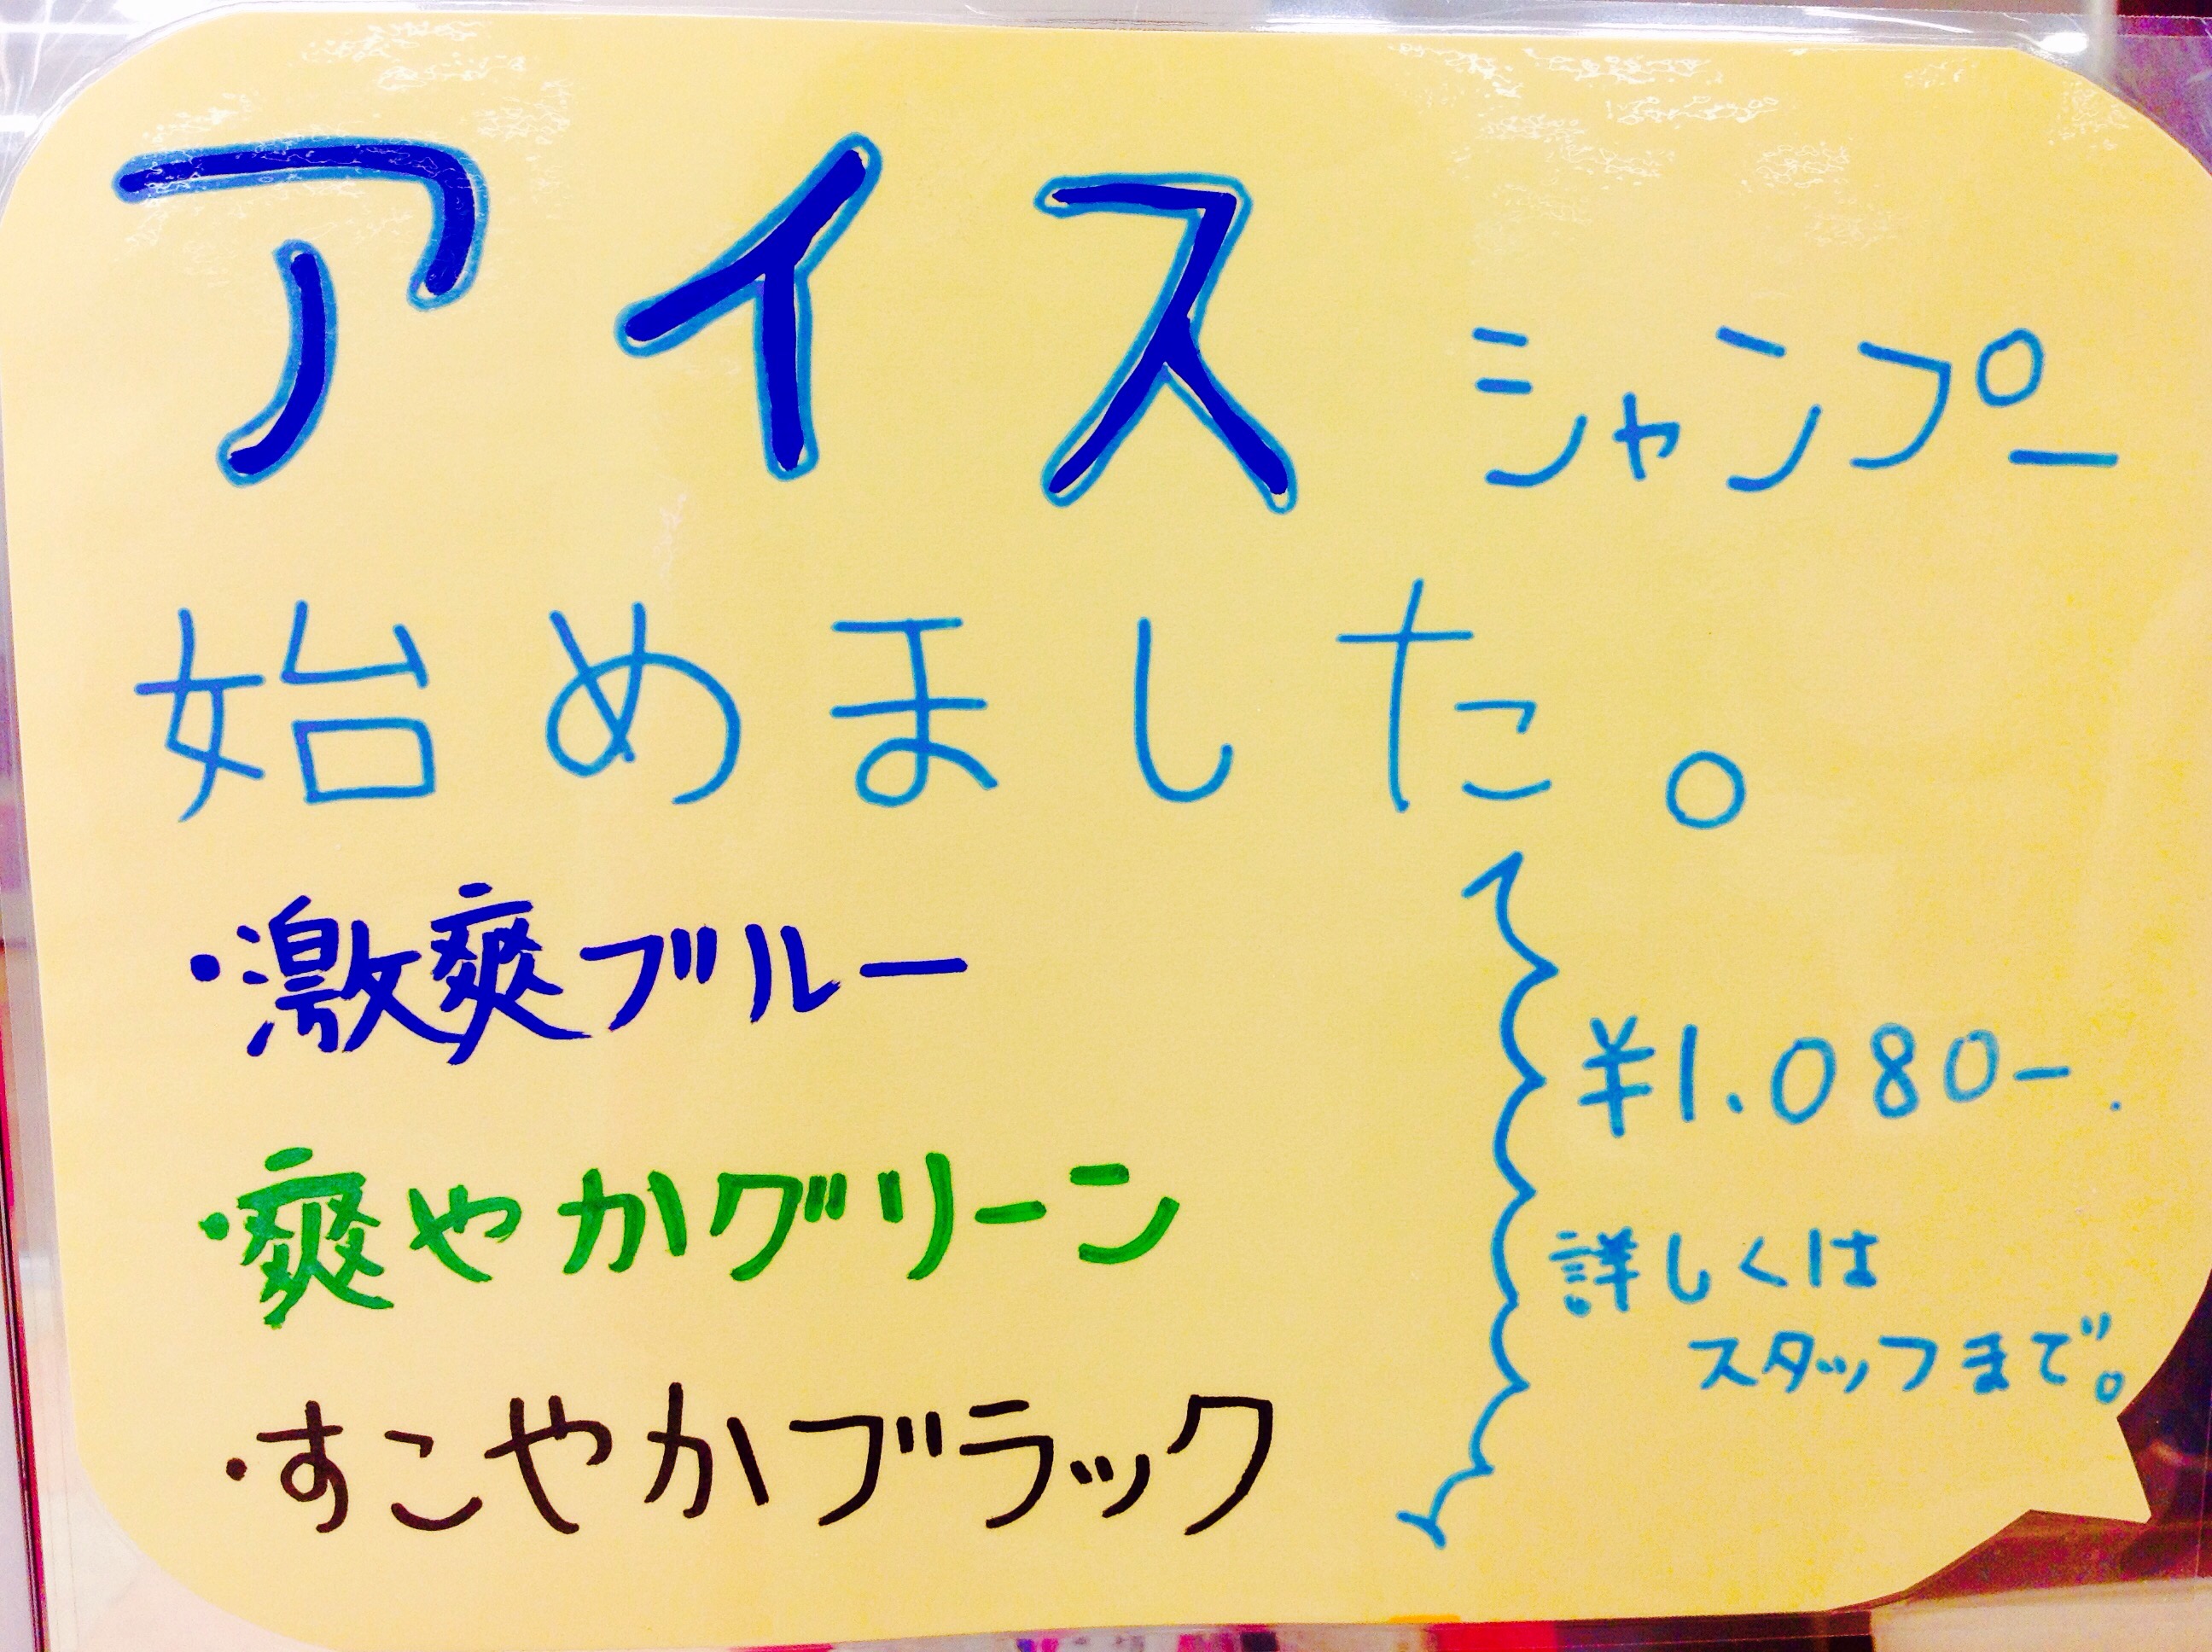 アイスシャンプー
始めました。
・激爽ブルー
・爽やかグリーン
・すこやかブラック
¥1.080-.
詳しくは
スタッフまで。